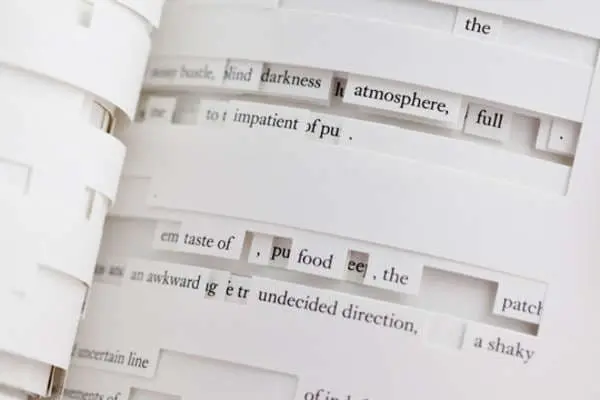 the
bustle, blind darkness atmosphere, full .
me to impatient of pu .
em taste of , pu food ee , the patch
an awkward ig e tr undecided direction, a shaky
uncertain line
ements of of ind